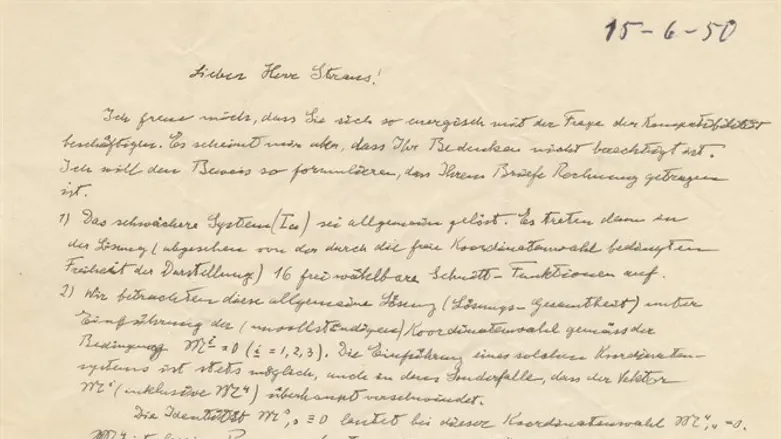 15-6-50
Lieber Herr Straus!
Ich freue mich, dass Sie sich so energisch mit der Frage der Kompatibilität
beschäftigen. Es scheint mir aber, dass Ihr Bedenken nicht berechtigt ist.
Ich will den Beweis so formulieren, dass Ihrem Briefe Rechnung getragen
ist.
1) Das schwächere System (Ia) sei allgemein gelöst. Es treten dann in
der Lösung (abgesehen von der durch die freie Koordinatenwahl bedingten
Freiheit der Darstellung) 16 frei wählbare Schnitt-Funktionen auf.
2) Wir betrachten diese allgemeine Lösung (Lösungs-Gesamtheit) unter
Einführung der (unvollständigen) Koordinatenwahl gemäss der
Bedingung 𝔐^i = 0 (i = 1, 2, 3). Die Einführung eines solchen Koordinaten-
systems ist stets möglich, auch in dem Sonderfalle, dass der Vektor
𝔐^s (inklusive 𝔐^4) überhaupt verschwindet.
Die Identität 𝔐^s,s ≡ 0 lautet bei dieser Koordinatenwahl 𝔐^4,4 = 0.